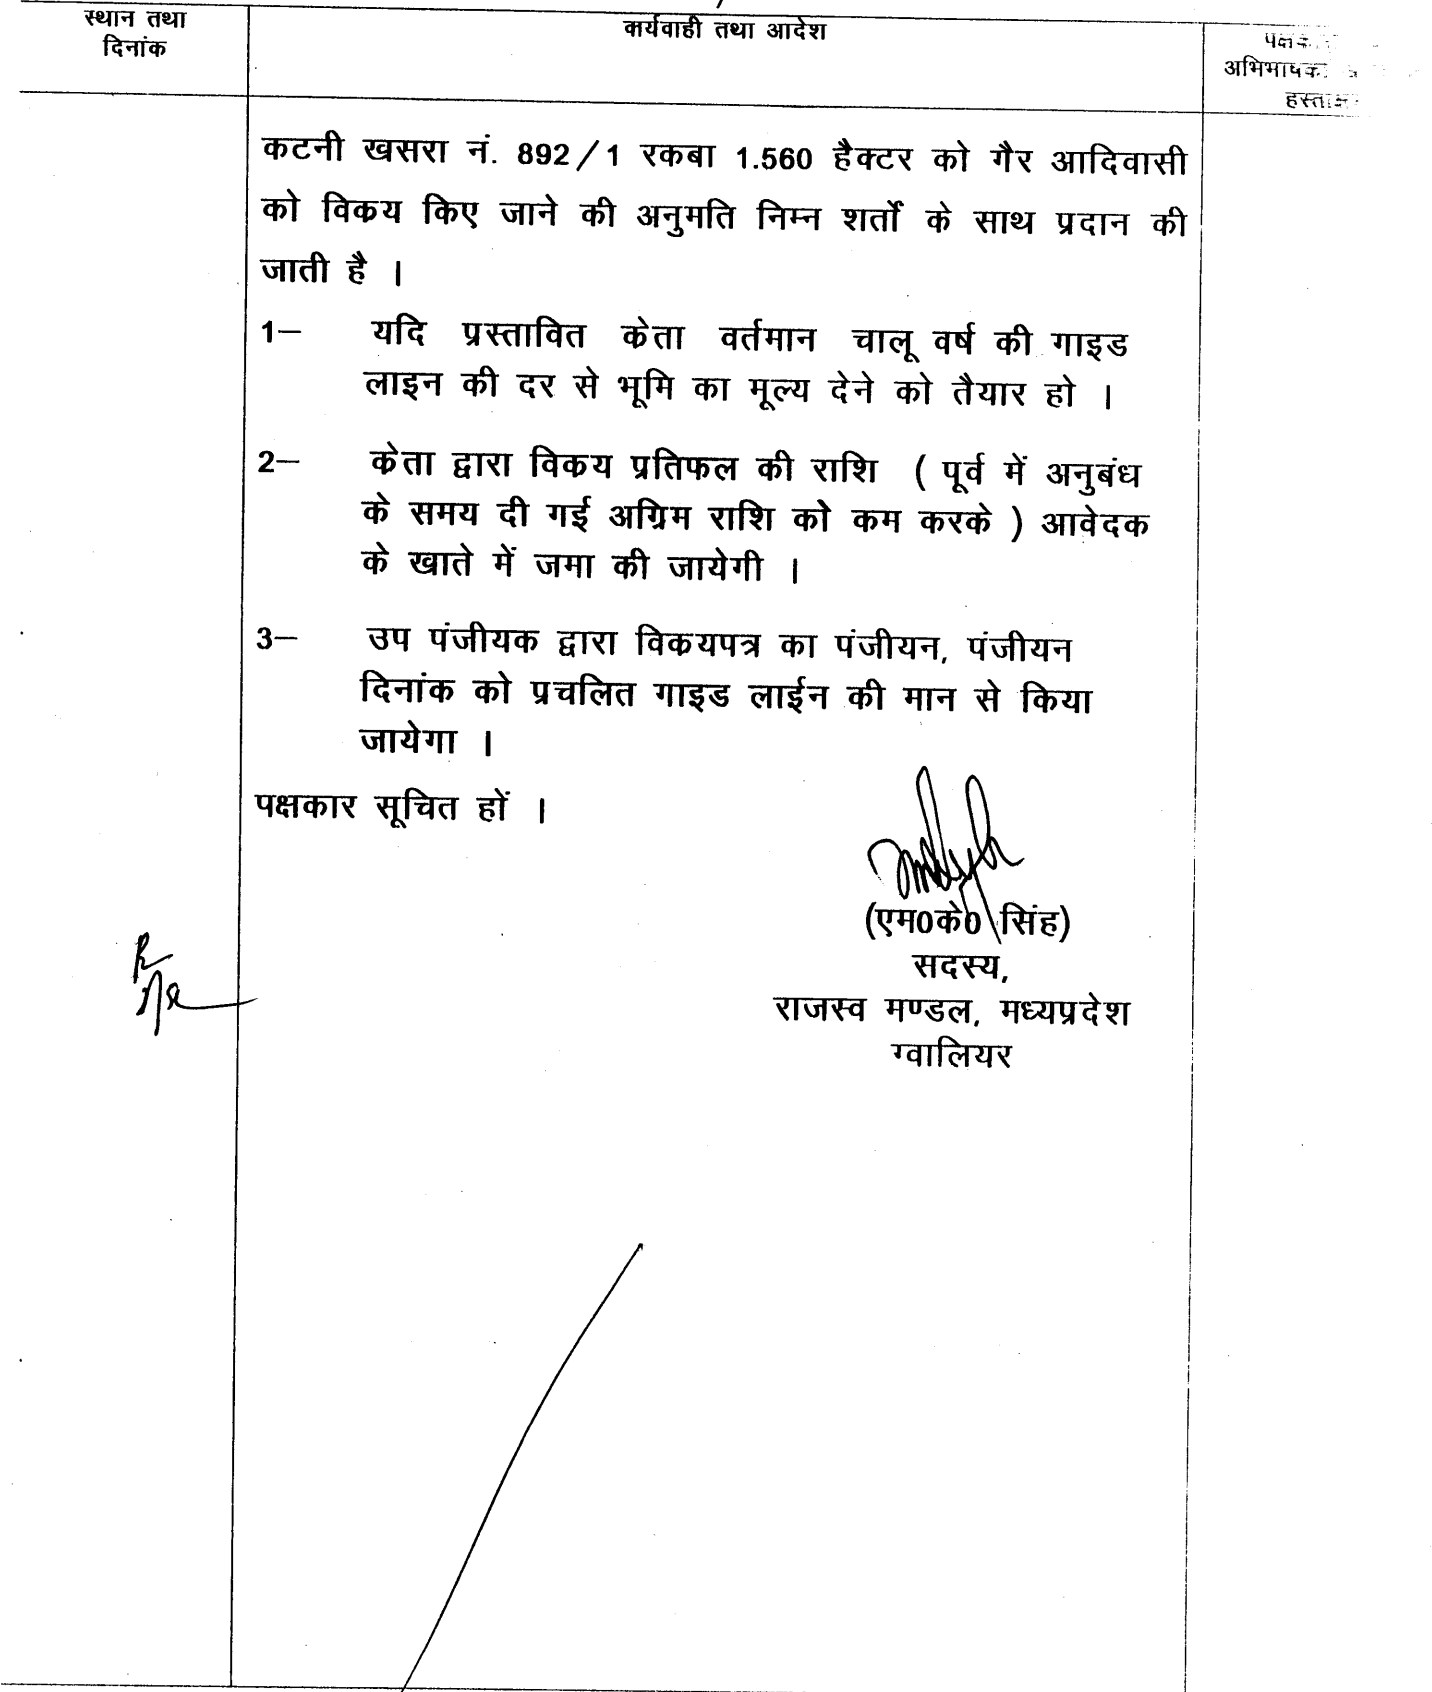 स्थान तथा
दिनांक
कार्यवाही तथा आदेश
अभिभाषकों
कटनी खसरा नं. 892/1 रकबा 1.560 हैक्टर को गैर आदिवासी
को विकय किए जाने की अनुमति निम्न शर्तो के साथ प्रदान की
जाती है ।
1— यदि प्रस्तावित केता वर्तमान चालू वर्ष की गाइड
लाइन की दर से भूमि का मूल्य देने को तैयार हो ।
2— केता द्वारा विकय प्रतिफल की राशि ( पूर्व में अनुबंध
के समय दी गई अग्रिम राशि को कम करके ) आवेदक
के खाते में जमा की जायेगी ।
3— उप पंजीयक द्वारा विकयपत्र का पंजीयन, पंजीयन
दिनांक को प्रचलित गाइड लाईन की मान से किया
जायेगा ।
पक्षकार सूचित हों ।
(एम0के0 सिंह)
सदस्य,
राजस्व मण्डल, मध्यप्रदेश
ग्वालियर